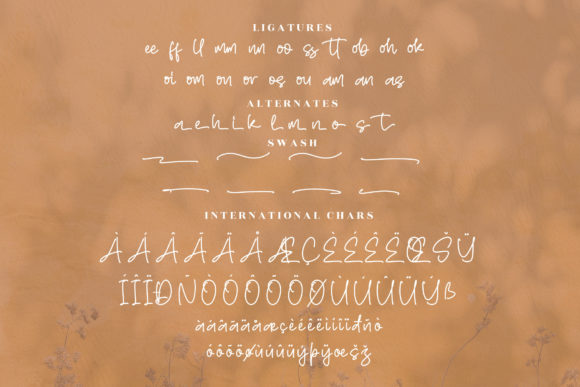 LIGATURES
ee ff ll mm nn oo ss tt ob oh ok
oi om on or os ou am an as
ALTERNATES
a e h i k l m n o s t
SWASH
INTERNATIONAL CHARS
ÀÁÂÃÄÅÆÇÈÉÊËŒŠŸ
ÍÎÏÐÑÒÓÔÕÖØÙÚÛÜÝß
àáâãäåæçèéêëìíîïđñò
óôõöøùúûüýþÿœšž